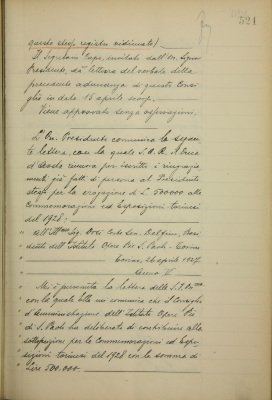 524
questo stesso registro vidimato).
Il Segretario Capo, invitato dall'On. Signor
Presidente, dà lettura del verbale della
precedente adunanza di questo Consi-
glio in data 15 aprile
Viene approvato senza osservazioni.
L'On. Presidente comunica la seguen-
te lettera, con la quale S.A.R. il Duca
d'Aosta rinnova per iscritto i ringrazia-
menti già fatti di persona al Presidente
stesso per la erogazione di L 500000 alle
Commemorazioni ed Esposizioni torinesi
del 1928:
" All'Ill.mo Sig. Dott. Conte Sen. Delfino, Presi-
dente dell'Istituto Opere Pie S. Paolo - Torino
Torino, 26 aprile 1927.
Anno V.
" Mi è pervenuta la lettera della S.V. Ill.ma
" con la quale Ella mi comunica che il Consiglio
" d'Amministrazione dell'Istituto Opere Pie
" di S. Paolo ha deliberato di contribuire alla
" sottoscrizione per le Commemorazioni ed Espo-
" sizioni torinesi del 1928 con la somma di
" Lire 500.000.